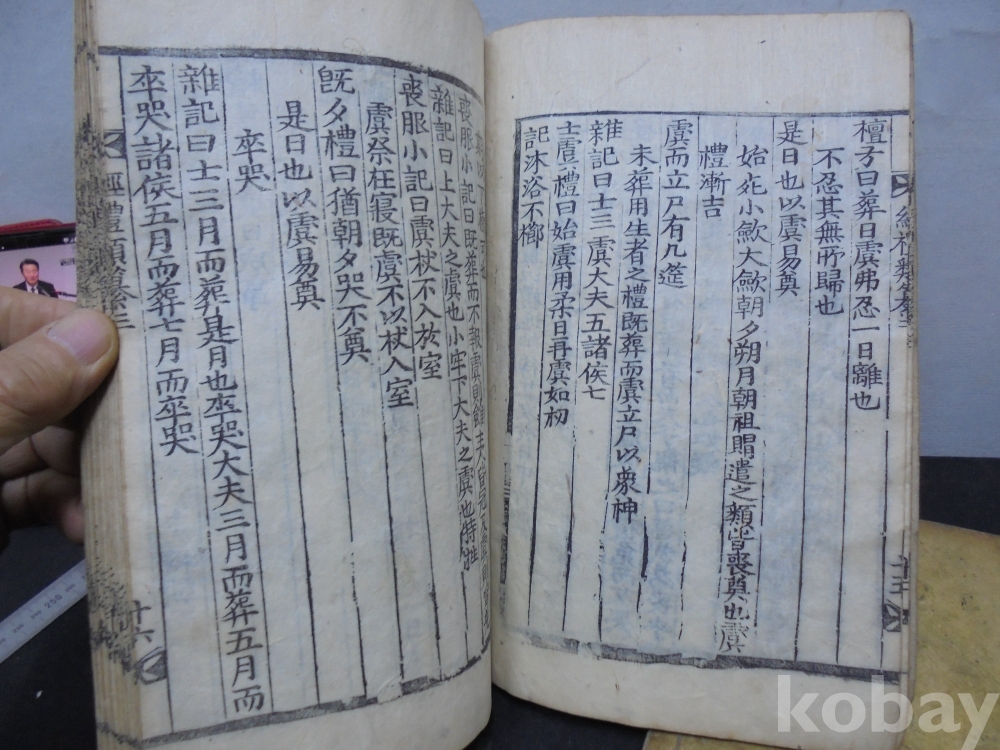 檀弓曰葬日虞弗忍一日離也
不忍其無所歸也
是日也以虞易奠
始死小斂大斂朝夕朔月朝祖賵遣之類皆喪奠也虞
禮漸吉
虞而立尸有几筵
未葬用生者之禮既葬而虞立尸以象神
雜記曰士三虞大夫五諸侯七
士虞禮曰始虞用柔日再虞如初
記沐浴不櫛
喪服小記曰既葬而不報虞則雖主人皆冠
雜記曰上大夫之虞也小牢下大夫之虞也特牲
喪服小記曰虞杖不入於室
虞祭在寢既虞不以杖入室
既夕禮曰猶朝夕哭不奠
是日也以虞易奠
卒哭
雜記曰士三月而葬是月也卒哭大夫三月而葬五月而
卒哭諸侯五月而葬七月而卒哭
經禮類纂卷之三
十六
kobay